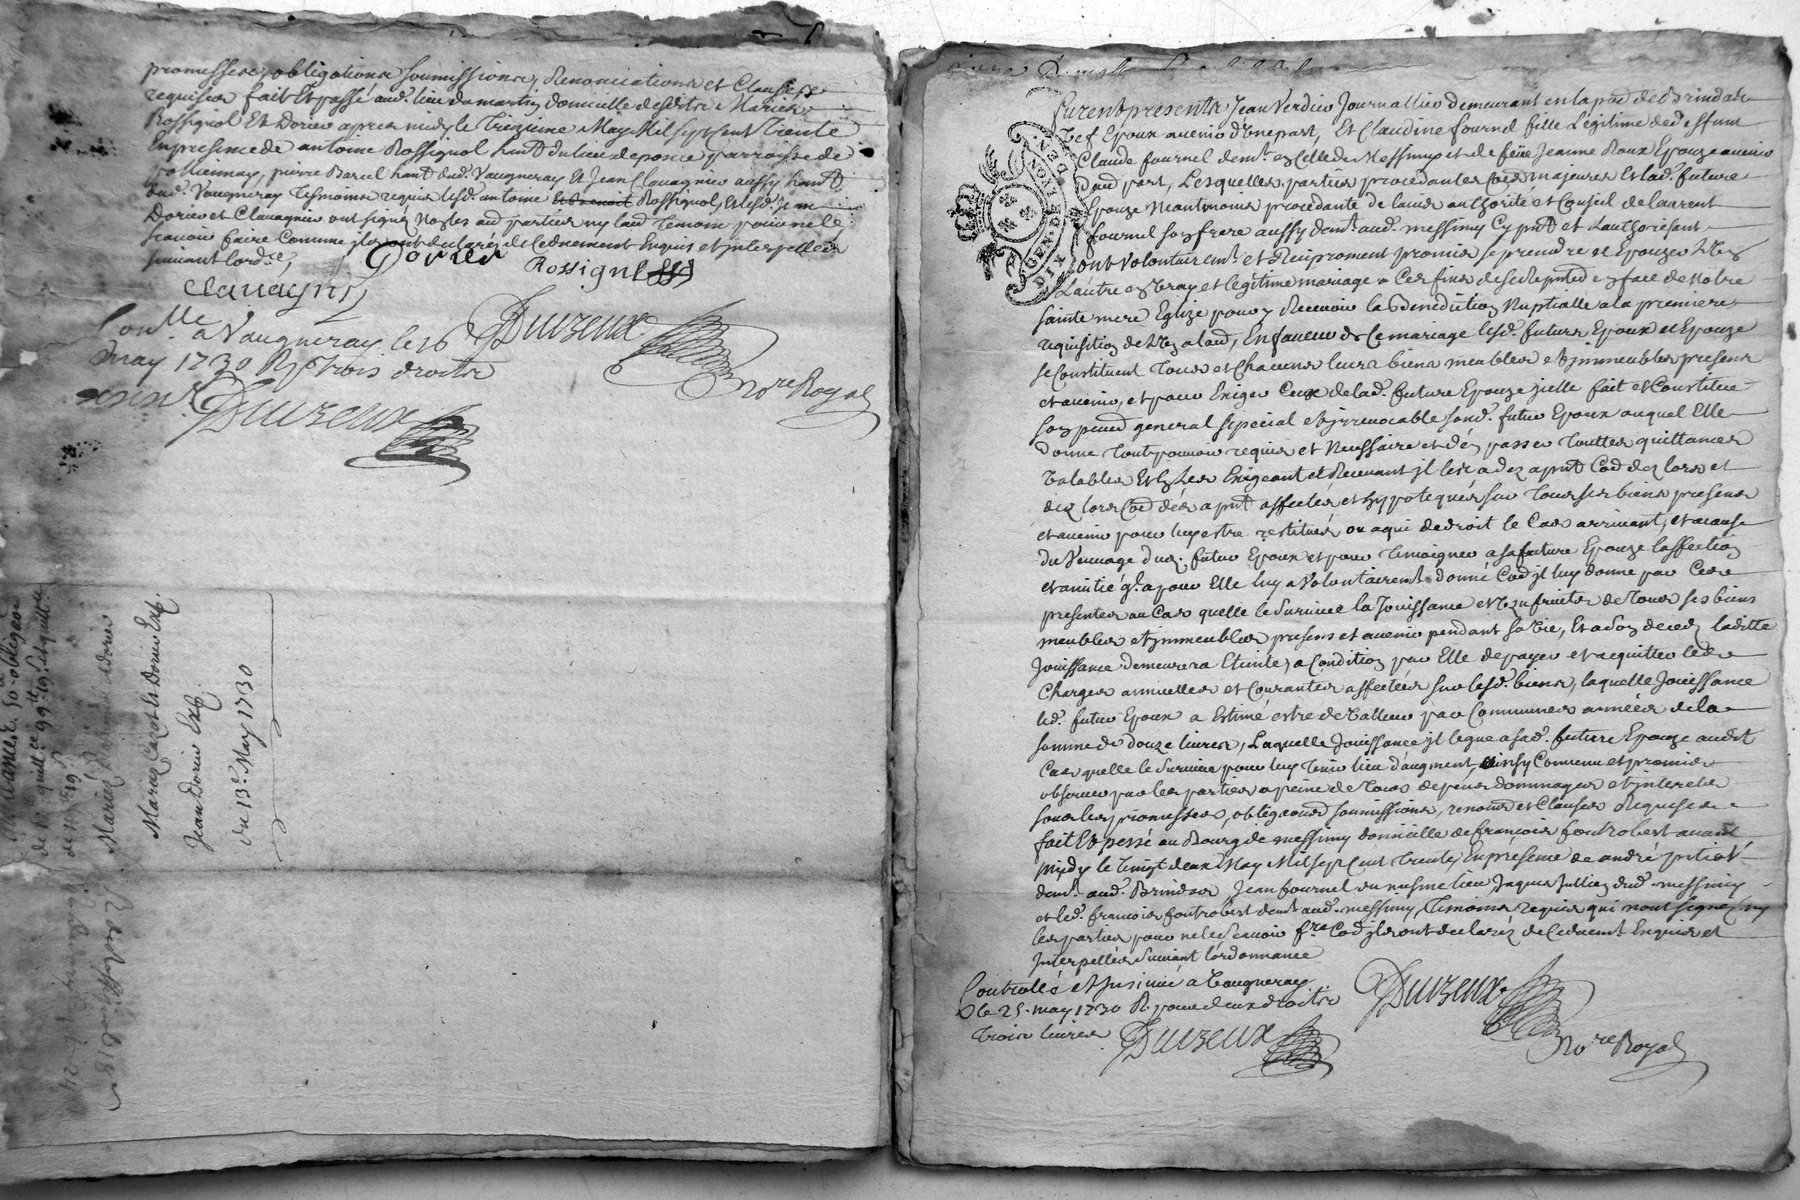 promesses, obligations soumissions, Renonciations et Clauses
requises fait Et passé aud. lieu du martin domicille desdits Mariés
Rossignol Et Dorier apres midy le Treizieme May Mil sept Cent Trente
En presence de antoine Rossignol hant du lieu de ponce parroisse de
pollionnay, pierre Barcel hant dud. Vaugneray Et Jean Clavagnier aussy hant
dud. Vaugneray Tesmoins requis lesd. antoine Rossignol, Et lesd. Jean
Dorier et Clavagnier ont signez Non les autres parties ny lautre Temoin pour ne le
scavoir faire Comme ils ont declarés de Ce duement Enquis et interpellés
suivant lord.ce
Dorier Rossignol
Clavagnier
Conllé a Vaugneray le 26
may 1730 R trois droits
Duvzeux
No.re Royal
Duvzeux
Mariez Carot et Dorier Exp.
Jean Dorier Exp.
du 13.e May 1730
DIX GEN. DE LYON
Furent presents Jean Verdier Journallier demeurant en la par. de Brindas
Et Epoux avenir d'Une part, Et Claudine fournel fille Legitime de deffunt
Claude fournel dem.t en Celle de Messimy et de feüe Jeanne Roux Epouze avenir
D'autre part, Lesquelles parties procedantes Comme majeures Et lad. future
Epouze Neantmoins procedante de laud. authorité et Conseil de laurent
fournel son frere aussy dem.t aud. messimy Cy pnt et Lauthorisant
ont Volontairem.t et Reciproquem.t promis se prendre et Epouzer L'Un
L'autre en Vray et legitime mariage a Ces fins de se presenter en face de Notre
sainte mere Eglize pour y Recevoir la benediction Nuptialle a la premiere
requisition de L'Un a laud, En faveur de Ce mariage lesd. futurs Epoux et Epouze
se Constituent Tous et Chacuns leurs biens meubles et immeubles presens
et avenir, et pour Exiger Ceux de lad. future Epouze jcelle fait et Constitue
son procureur general special et jrrevocable sond. futur Epoux auquel Elle
donne Tout pouvoir requis et Necessaire et d'en passer Touttes quittances
Valables Et Les Exigeant et Recevant jl les a dez a pnt Comme dez lors et
dez lors Comme dés a pnt affectés et hypotequés sur Tous ses biens presens
et avenir pour luy estre restitués ou a qui de droit le Cas arrivant, et a Cause
du Veuvage dud. futur Epoux et pour Temoigner a sa future Epouze l'affection
et amitié q'l a pour Elle luy a Volontairem.t donné Comme jl luy donne par Ces
presentes au Cas quelle le Survive la Jouissance et Usufruits de Tous ses biens
meubles et immeubles presens et avenir pendant sa Vie, Et a son decez laditte
Jouissance demeurera Eteinte, a Condition par Elle de payer et acquitter les
Charges annuelles et Courantes affectées sur lesd. biens, laquelle Jouissance
led. futur Epoux a Estimé estre de Valleur par Communes années de la
somme de douze livres, Laquelle Jouissance jl legue a sad. future Epouze aud.t
Cas quelle le Survive pour luy Tenir lieu d'augment, ainsy Convenu et promis
observer par les parties a peine de Tous depens dommages et interets
sous les promesses, obligations soumissions, renon.ons et Clauses Requises
fait Et passé au Bourg de messimy domicille de françois fontrobert avant
Midy le Vingt deux May Mil sept Cent Trente, En presence de andré
dem.t aud. Brindas Jean fournel du mesme lieu Jaques Jullien dud. messimy
et led. françois fontrobert dem.t aud. messimy, Temoins requis qui n'ont signez, ny
les parties pour ne le Scavoir f.re Comme jls ont declarez de Ce duem.t Enquis et
Interpellés Suivant l'ordonnance
Controlés et Insinué a Vaugneray
le 25. may 1730 R. pour deux droits
trois livres
Duvzeux
No.re Royal
Duvzeux